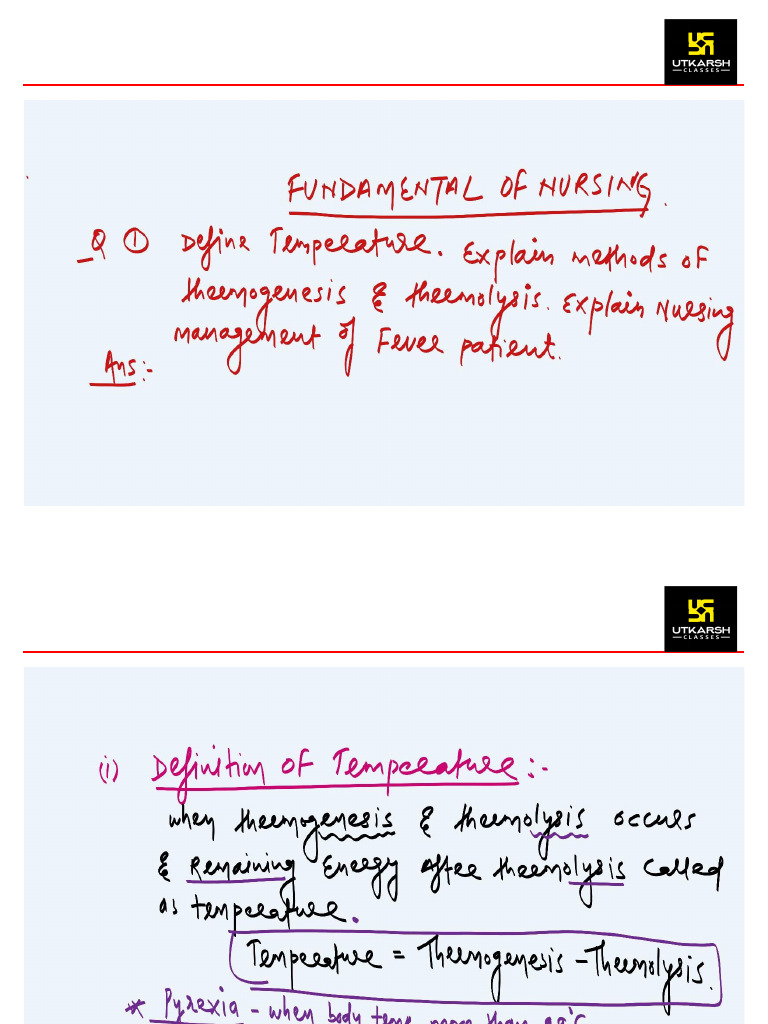 UTKARSH
CLASSES
FUNDAMENTAL OF NURSING.
Q ① Define Temperature. Explain methods of
thermogenesis & thermolysis. Explain Nursing
management of Fever patient.
Ans:-
UTKARSH
CLASSES
(i) Definition of Temperature:-
when thermogenesis & thermolysis occurs
& Remaining Energy after thermolysis called
as temperature.
Temperature = Thermogenesis - Thermolysis.
* Pyrexia - when body temp more than